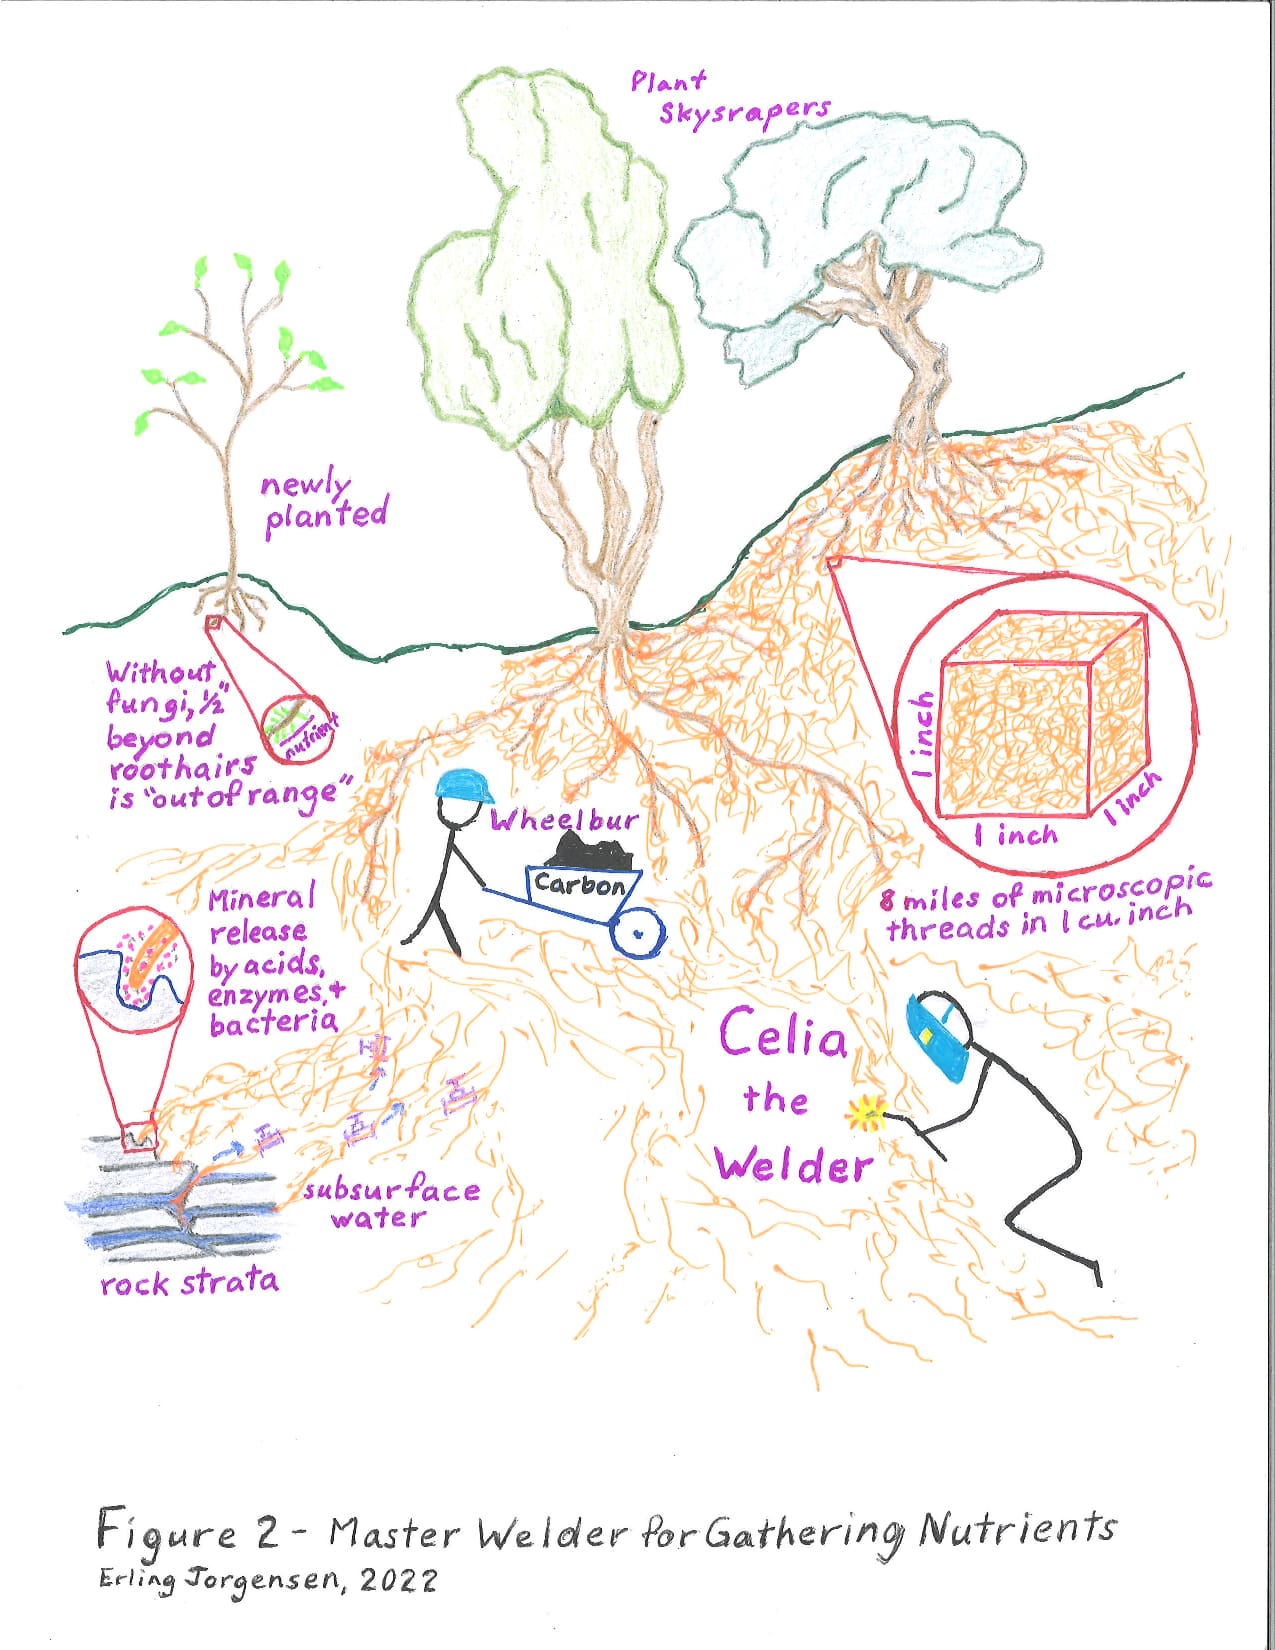 Plant
Skysrapers
newly
planted
Without
fungi, ½"
beyond
roothairs
is "out of range"
nutrient
1 inch
1 inch
1 inch
8 miles of microscopic
threads in 1 cu. inch
Wheelbur
Carbon
Mineral
release
by acids,
enzymes, +
bacteria
Celia
the
Welder
subsurface
water
rock strata
Figure 2 - Master Welder for Gathering Nutrients
Erling Jorgensen, 2022